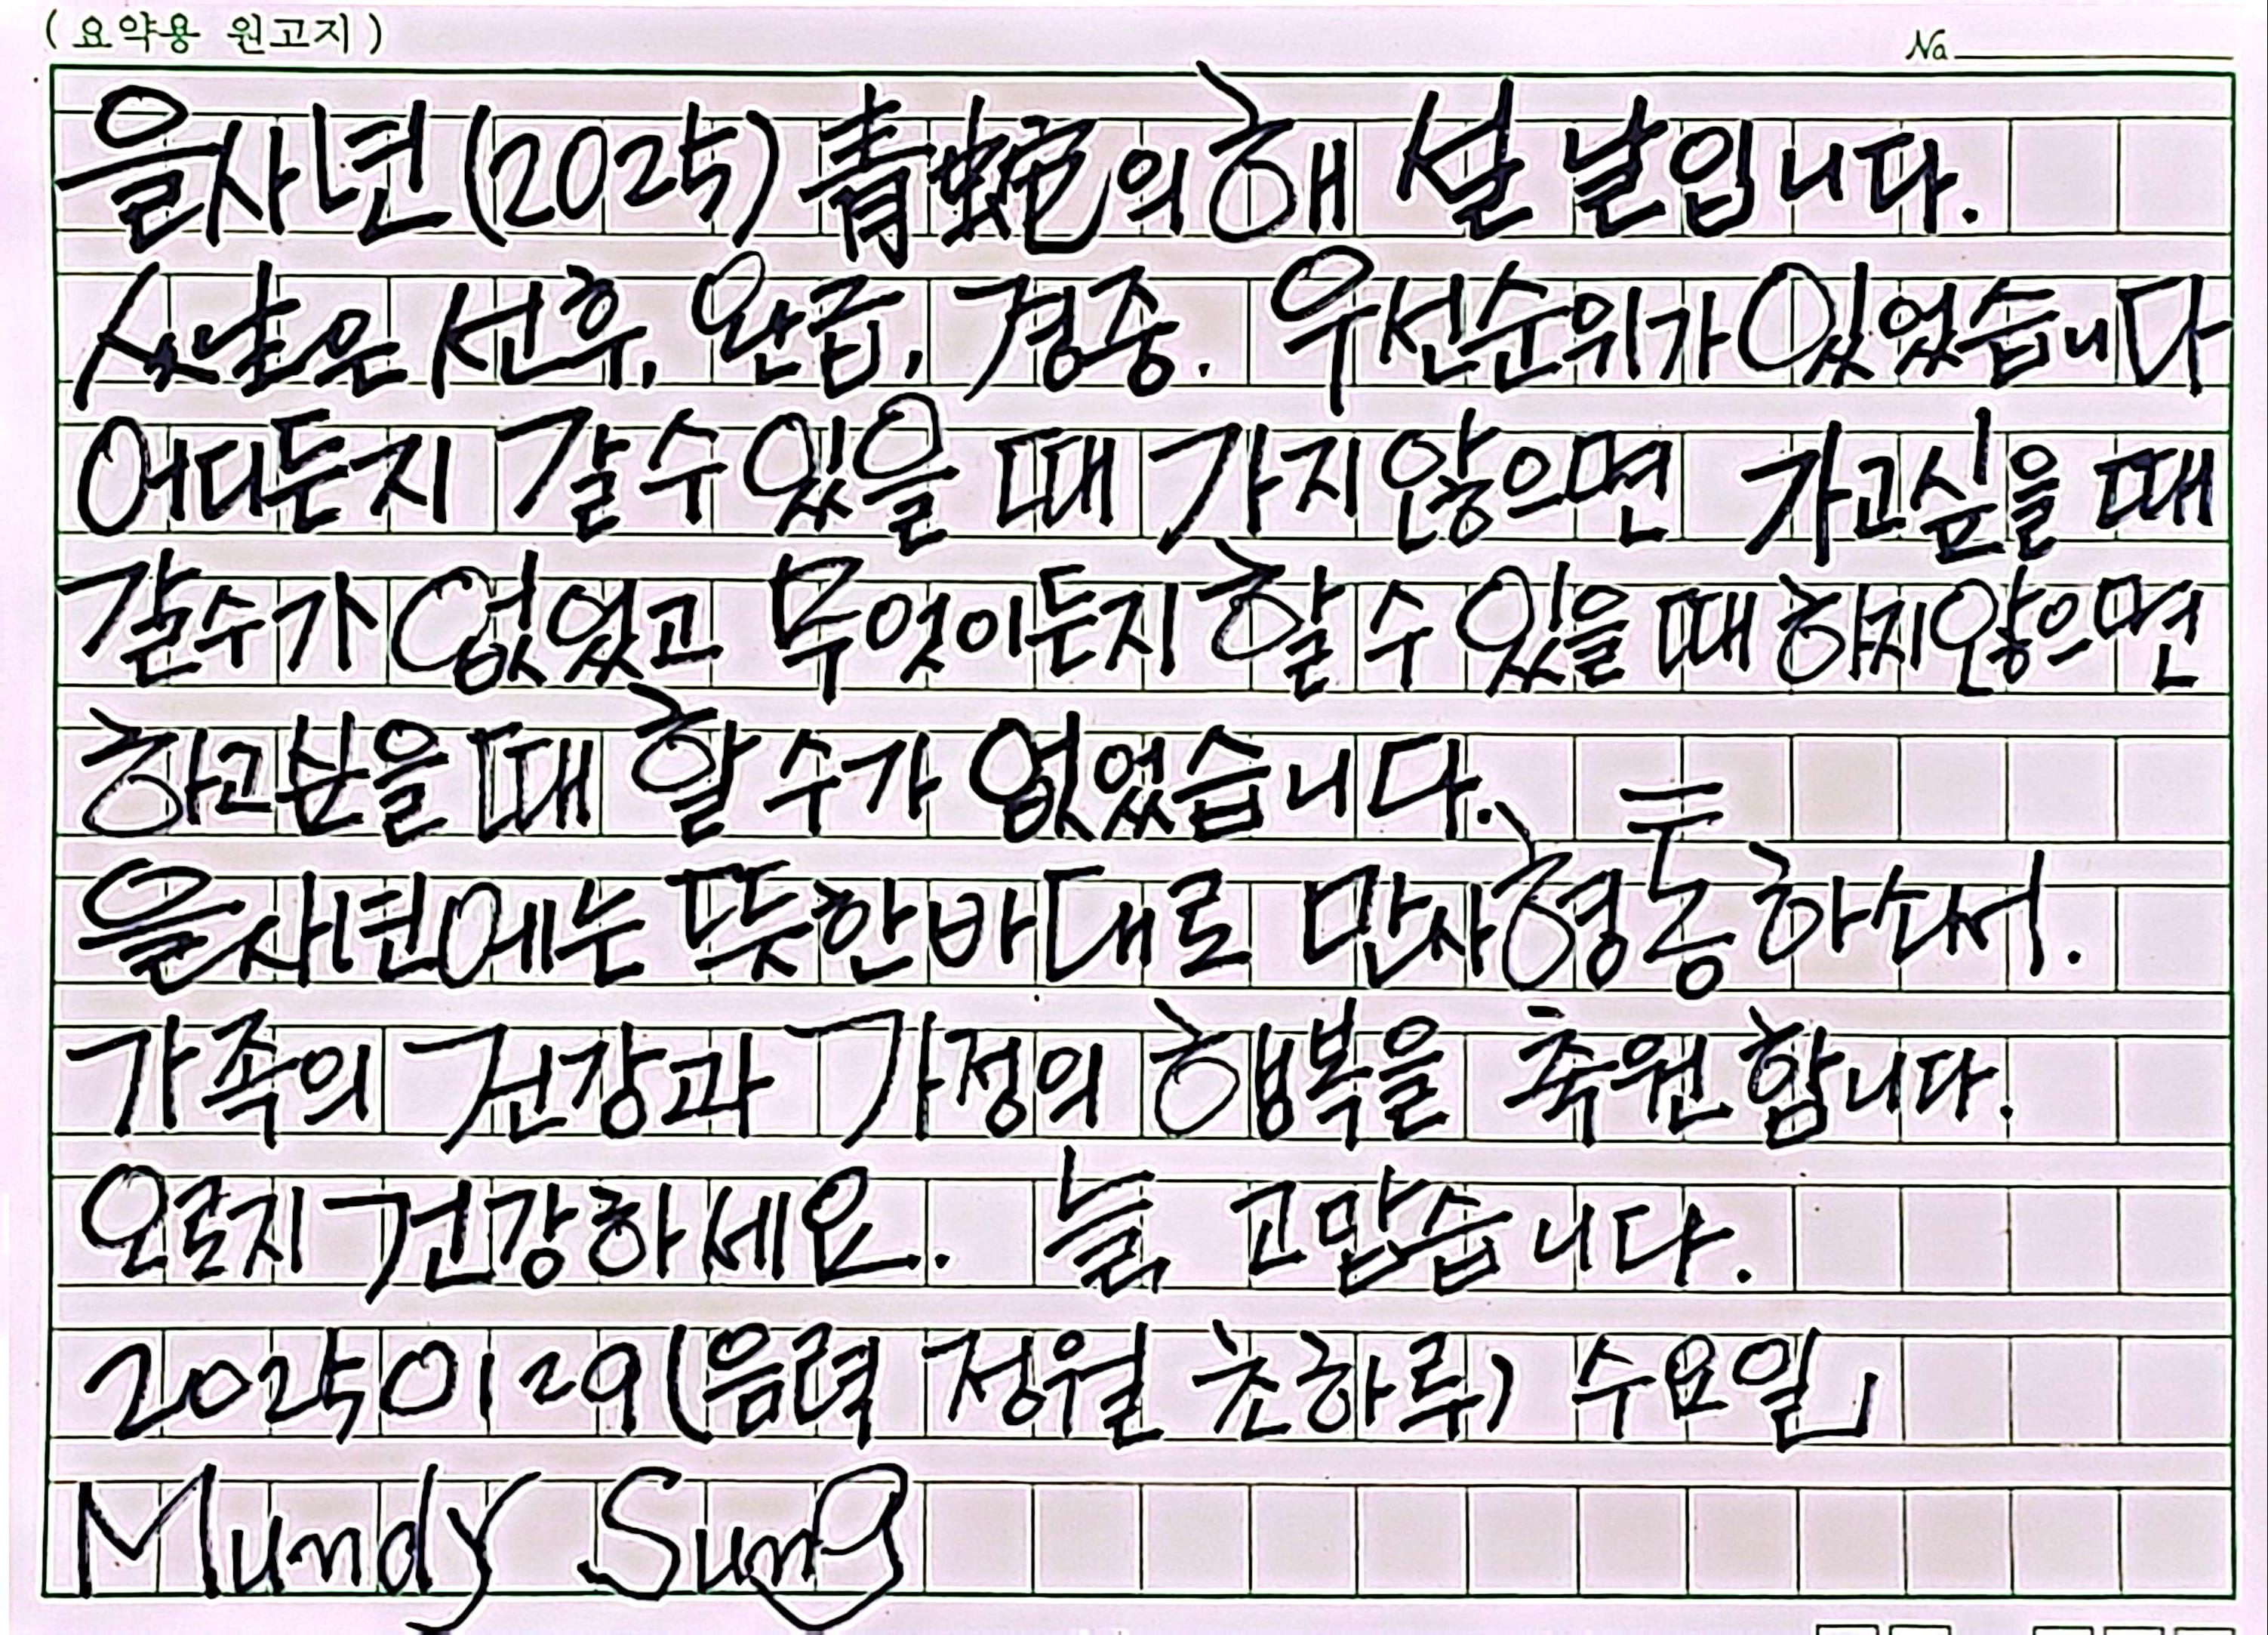 (요약용 원고지)
No
을사년(2025) 青蛇의 해 설날입니다.
옛날은 선후, 완급, 경중. 우선순위가 있었습니다
어디든지 갈수있을 때 가지않으면 가고싶을 때
갈수가 없었고 무엇이든지 할수있을 때 하지않으면
하고싶을 때 할수가 없었습니다.
을사년에는 뜻한바대로 만사형통하소서.
가족의 건강과 가정의 행복을 축원합니다.
오로지 건강하세요. 늘, 고맙습니다.
2025 01 29(음력 정월 초하루) 수요일」
Mundy Sung